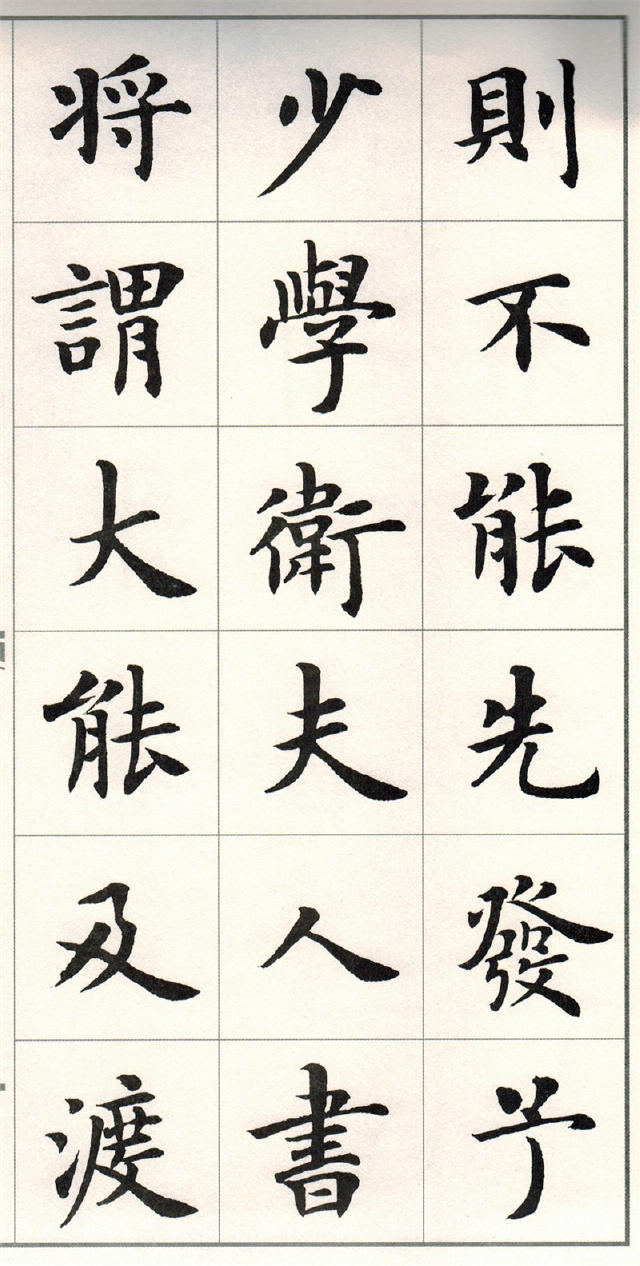 則不能先發予
少學衛夫人書
将謂大能及渡